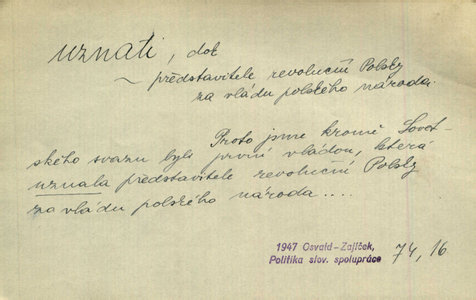 uznati, dok
~ představitele revoluční Polsky
za vládu polského národa.
Proto jsme kromě Sovět-
ského svazu byli první vládou, která
uznala představitele revoluční Polsky
za vládu polského národa....
1947 Osvald-Zajíček,
Politika slov. spolupráce
74, 16